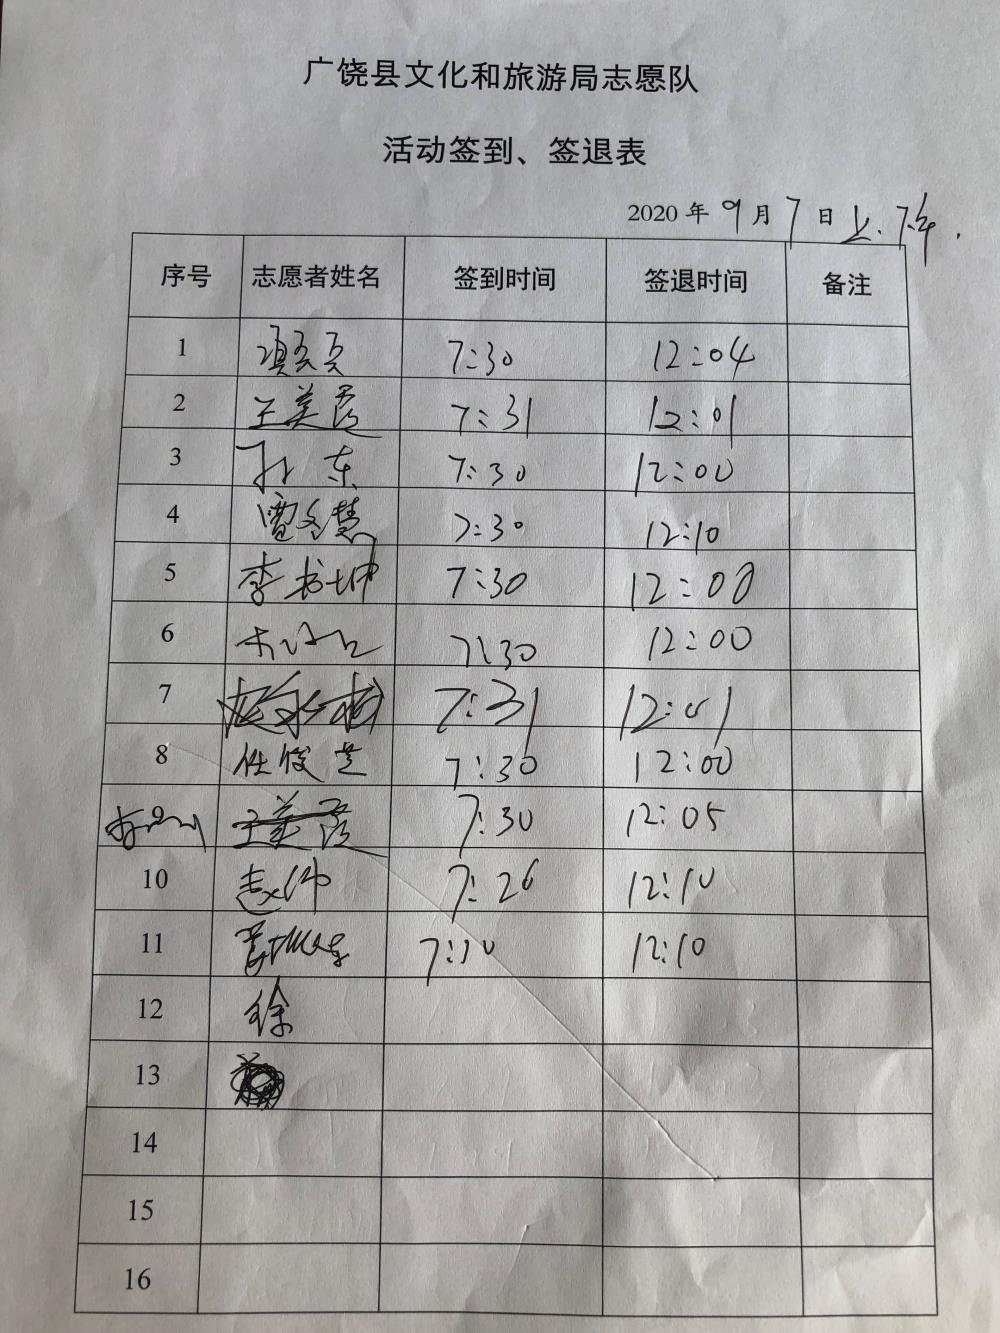 广饶县文化和旅游局志愿队
活动签到、签退表
2020年9月7日上、下午.
序号 志愿者姓名 签到时间 签退时间 备注
1 7:30 12:04
2 王美霞 7:31 12:01
3 孙东 7:30 12:00
4 7:30 12:10
5 李书坤 7:30 12:00
6 7:30 12:00
7 7:31 12:01
8 任俊芝 7:30 12:00
9 王美霞 7:30 12:05
10 赵伟 7:26 12:10
11 7:10 12:10
12 徐
13
14
15
16